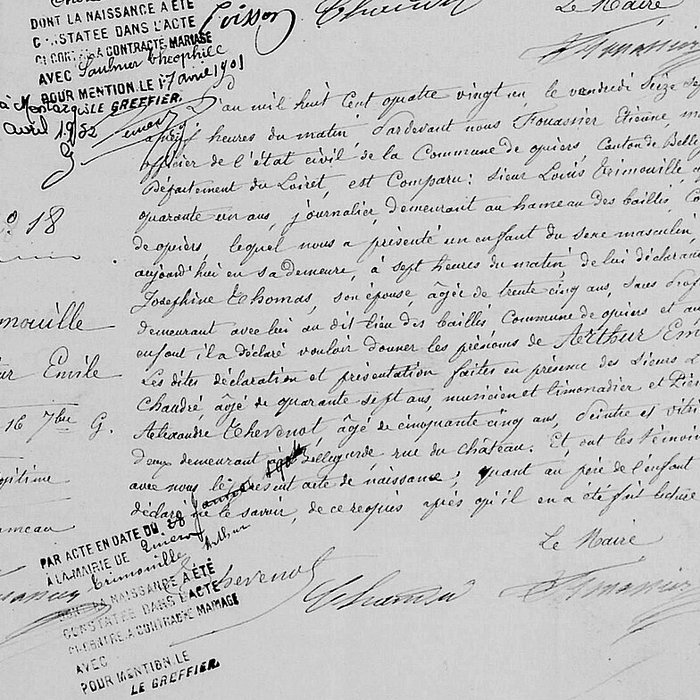 DONT LA NAISSANCE A ÉTÉ
CONSTATÉE DANS L'ACTE
CI CONTRE A CONTRACTÉ MARIAGE
AVEC Saulnier Théophile
POUR MENTION LE 17 avril 1901
LE GREFFIER.
à Montargis
avril 1932
G.
Poisson
Le Maire
L'an mil huit Cent quatre vingt un, le vendredi Seize
heures du matin Pardevant nous Fouassier Etienne,
officier de l'état civil de la Commune de quiers Canton de Belle
Département du Loiret, est Comparu: Sieur Louis Trimouille
quarante un ans, journalier, demeurant au hameau des bailles,
de quiers, lequel nous a présenté un enfant du sexe masculin
aujourd'hui en sa demeure, à sept heures du matin, de lui déclarant
Joséphine Thomas, son épouse, âgée de trente cinq ans, sans
demeurant avec lui au dit lieu des bailles Commune de quiers et au
enfant il a déclaré vouloir donner les prénoms de Arthur
Les dites déclaration et présentation faites en présence des Sieurs
Chaudré âgé de quarante sept ans, musicien et limonadier et
Alexandre Thevenot, âgé de cinquante cinq ans, Peintre et
deux demeurant à Bellegarde rue du château. Et, ont les témoins
avec nous le présent acte de naissance; quant au père de l'enfant
déclaré ne le savoir, de ce requis après qu'il en a été fait lecture
Le Maire
Thevenot
N° 18
mouille
Emile
16 7bre G.
légitime
hameau
PAR ACTE EN DATE DU 28 Janvier
A LA MAIRIE DE
Trimouille Arthur
DONT LA NAISSANCE A ÉTÉ
CONSTATÉE DANS L'ACTE
CI CONTRE A CONTRACTÉ MARIAGE
AVEC
POUR MENTION LE
LE GREFFIER.